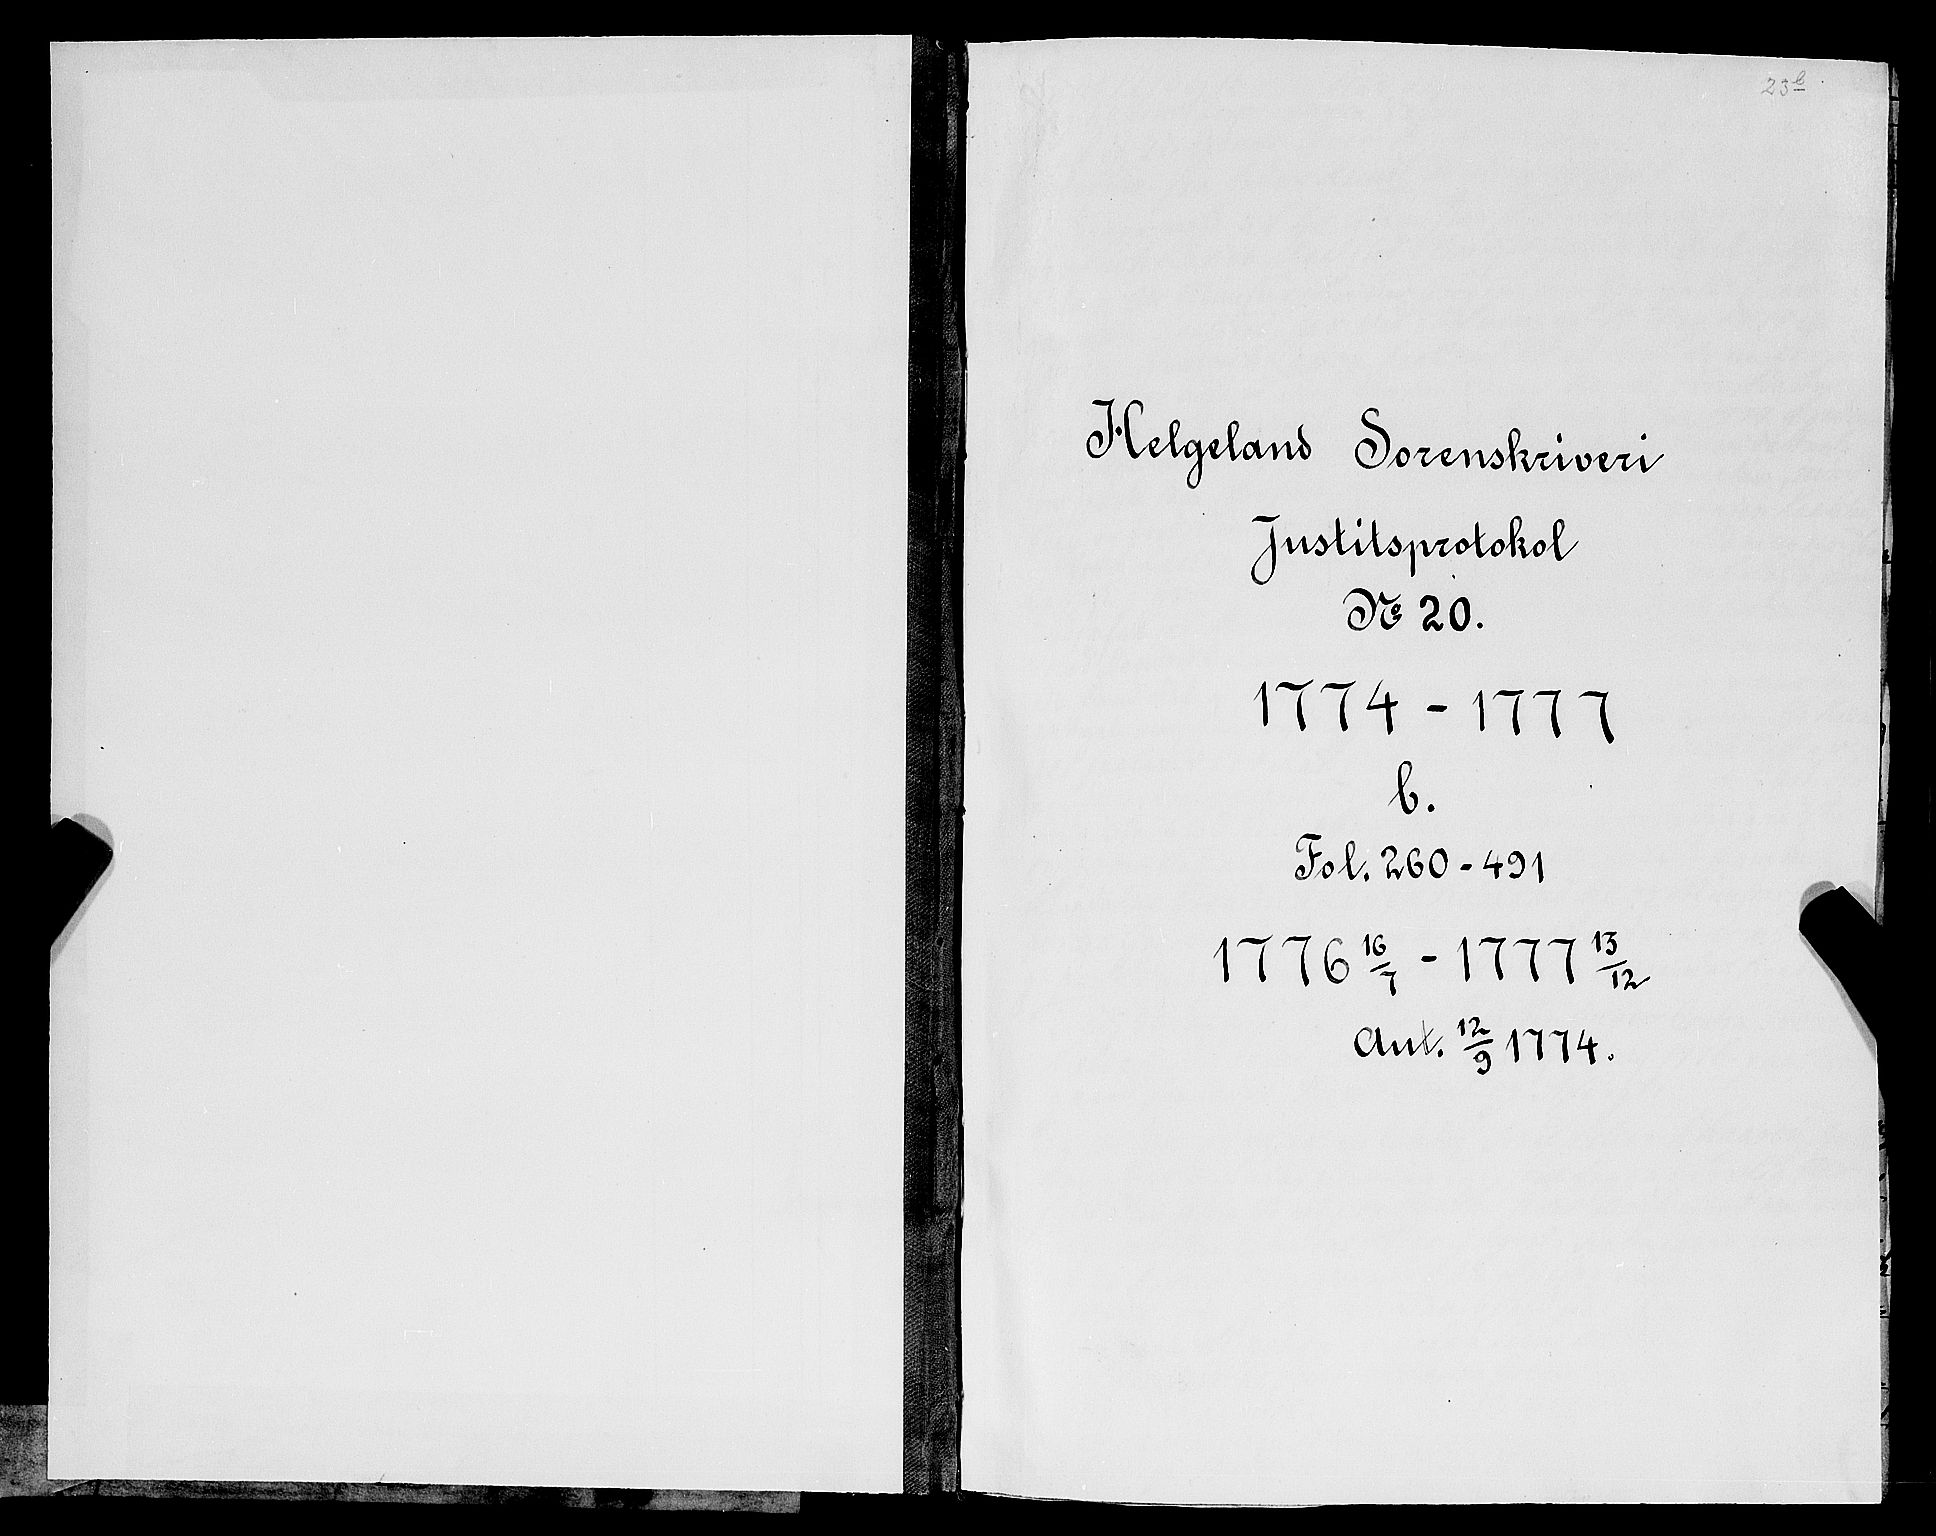 23b
Helgeland Sorenskriveri
Justitsprotokol
No 20.
1774 - 1777
b.
Fol. 260 - 491
1776 16/7 - 1777 13/12
Aut. 12/9 1774.